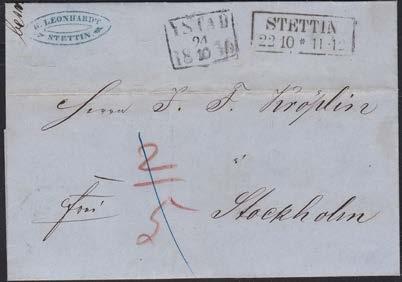 G. LEONHARDT
STETTIN
YSTAD
24
18 10 56
STETTIN
22 10 * 11-12
Herrn J. F. Kröplin
2/5
frei
Stockholm